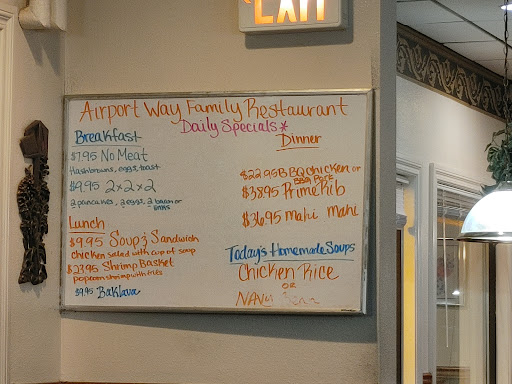 EXIT
Airport Way Family Restaurant
Daily Specials*
Breakfast
$7.95 No Meat
Hashbrowns, eggs, toast
$9.95 2x2x2
2 pancakes, 2 eggs, 2 bacon or
Lunch
$9.95 Soup & Sandwich
chicken salad with cup of soup
$23.95 Shrimp Basket
popcorn shrimp with fries
$9.95 Baklava
Dinner
$22.95 BBQ Chicken or
$38.95 Prime Rib
$36.95 Mahi Mahi
Today's Homemade Soups
Chicken Rice
OR
Navy Bean